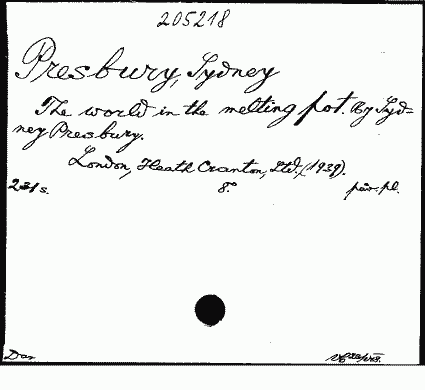 205218
Presbury, Sydney
The world in the melting pot. By Syd-
ney Presbury.
London, Heath Cranton, Ltd. (1939).
231 s. 8.° par. pl.
Dar